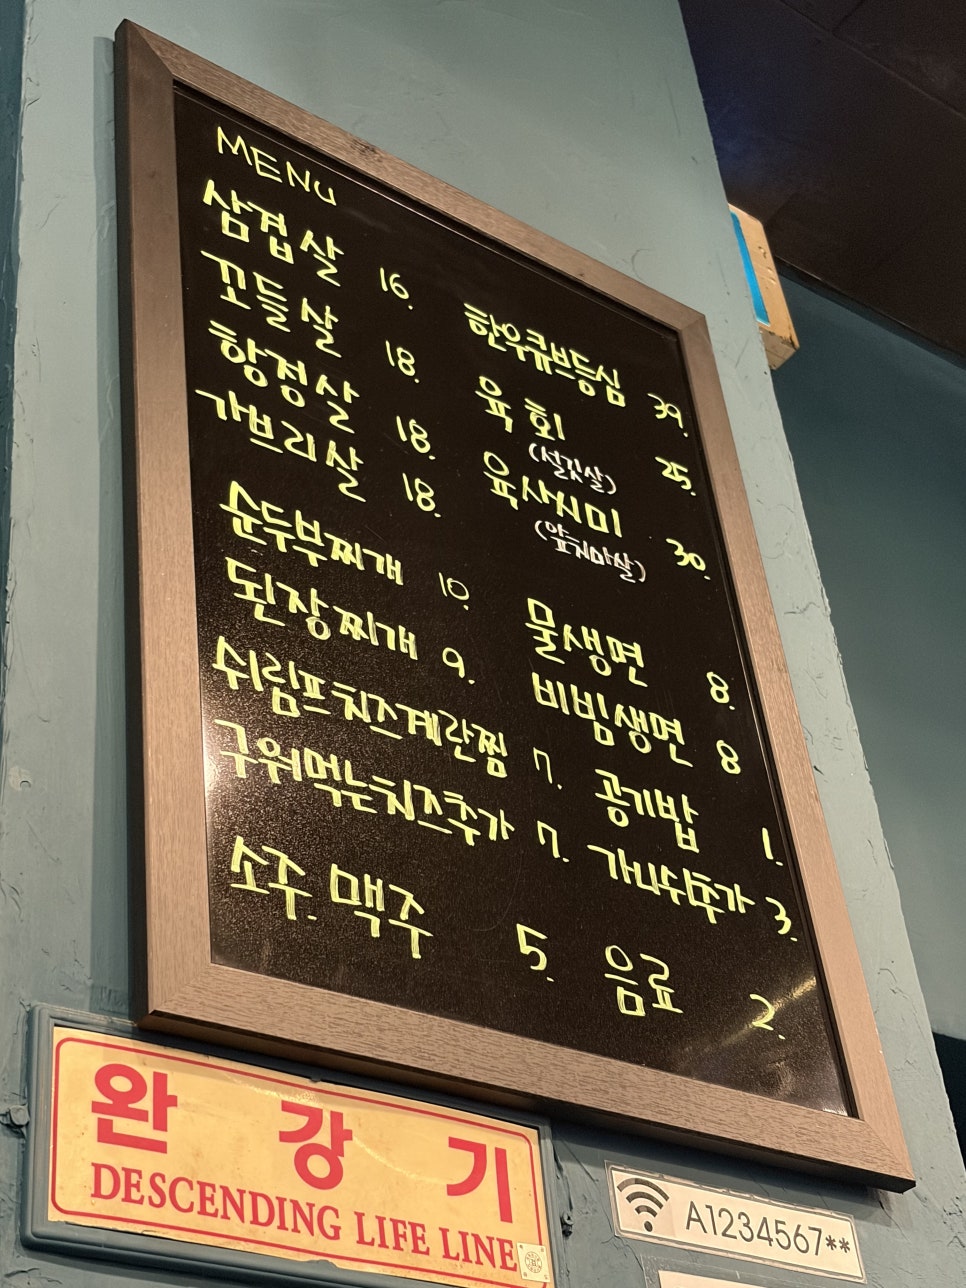 MENU
삼겹살 16.
꼬들살 18.
항정살 18.
가브리살 18.
순두부찌개 10.
된장찌개 9.
쉬림프치즈계란찜 7.
구워먹는치즈추가 7.
소주.맥주 5.
한우큐브등심 39.
육회 25.
(설깃살)
육사시미 30.
(앞치마살)
물생면 8.
비빔생면 8
공기밥 1.
가니쉬추가 3.
음료 2.
완강기
DESCENDING LIFE LINE
A1234567**